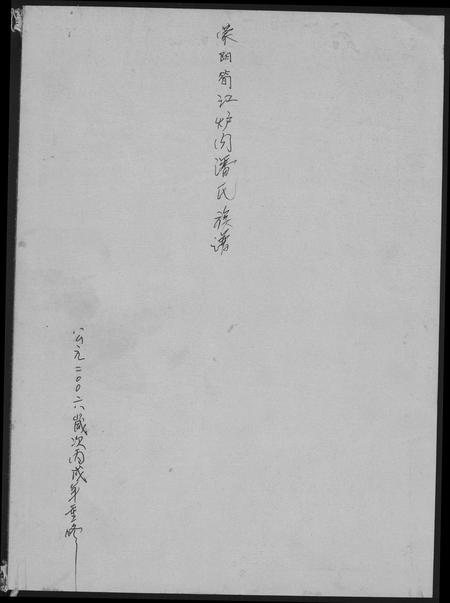 荥阳筍江炉内潘氏族谱
公元二〇〇六歲次丙戌年重修